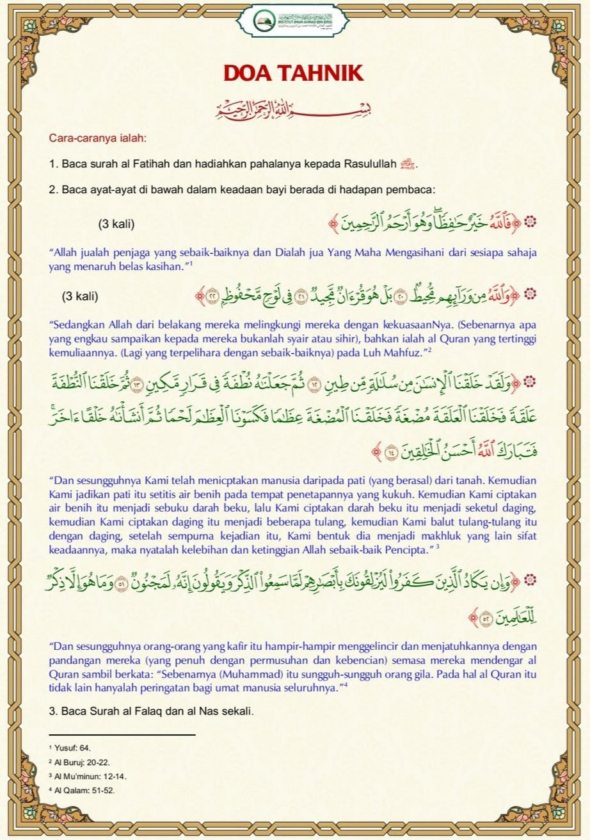 DOA TAHNIK
بِسْمِ اللَّهِ الرَّحْمَٰنِ الرَّحِيمِ
Cara-caranya ialah:
1. Baca surah al Fatihah dan hadiahkan pahalanya kepada Rasulullah ﷺ.
2. Baca ayat-ayat di bawah dalam keadaan bayi berada di hadapan pembaca:
﴿فَٱللَّهُ خَيْرٌ حَـٰفِظًا ۖ وَهُوَ أَرْحَمُ ٱلرَّٰحِمِينَ﴾ (3 kali)
“Allah jualah penjaga yang sebaik-baiknya dan Dialah jua Yang Maha Mengasihani dari sesiapa sahaja
yang menaruh belas kasihan.”¹
﴿وَٱللَّهُ مِن وَرَآئِهِم مُّحِيطٌۢ ٢٠ بَلْ هُوَ قُرْءَانٌ مَّجِيدٌ ٢١ فِى لَوْحٍ مَّحْفُوظٍۭ ٢٢﴾ (3 kali)
“Sedangkan Allah dari belakang mereka melingkungi mereka dengan kekuasaanNya. (Sebenarnya apa
yang engkau sampaikan kepada mereka bukanlah syair atau sihir), bahkan ialah al Quran yang tertinggi
kemuliaannya. (Lagi yang terpelihara dengan sebaik-baiknya) pada Luh Mahfuz.”²
﴿وَلَقَدْ خَلَقْنَا ٱلْإِنسَـٰنَ مِن سُلَـٰلَةٍ مِّن طِينٍ ١٢ ثُمَّ جَعَلْنَـٰهُ نُطْفَةً فِى قَرَارٍ مَّكِينٍ ١٣ ثُمَّ خَلَقْنَا ٱلنُّطْفَةَ
عَلَقَةً فَخَلَقْنَا ٱلْعَلَقَةَ مُضْغَةً فَخَلَقْنَا ٱلْمُضْغَةَ عِظَـٰمًا فَكَسَوْنَا ٱلْعِظَـٰمَ لَحْمًا ثُمَّ أَنشَأْنَـٰهُ خَلْقًا ءَاخَرَ ۚ
فَتَبَارَكَ ٱللَّهُ أَحْسَنُ ٱلْخَـٰلِقِينَ ١٤﴾
“Dan sesungguhnya Kami telah menicptakan manusia daripada pati (yang berasal) dari tanah. Kemudian
Kami jadikan pati itu setitis air benih pada tempat penetapannya yang kukuh. Kemudian Kami ciptakan
air benih itu menjadi sebuku darah beku, lalu Kami ciptakan darah beku itu menjadi seketul daging,
kemudian Kami ciptakan daging itu menjadi beberapa tulang, kemudian Kami balut tulang-tulang itu
dengan daging, setelah sempurna kejadian itu, Kami bentuk dia menjadi makhluk yang lain sifat
keadaannya, maka nyatalah kelebihan dan ketinggian Allah sebaik-baik Pencipta.”³
﴿وَإِن يَكَادُ ٱلَّذِينَ كَفَرُوا۟ لَيُزْلِقُونَكَ بِأَبْصَـٰرِهِمْ لَمَّا سَمِعُوا۟ ٱلذِّكْرَ وَيَقُولُونَ إِنَّهُۥ لَمَجْنُونٌ ٥١ وَمَا هُوَ إِلَّا ذِكْرٌ
لِّلْعَـٰلَمِينَ ٥٢﴾
“Dan sesungguhnya orang-orang yang kafir itu hampir-hampir menggelincir dan menjatuhkannya dengan
pandangan mereka (yang penuh dengan permusuhan dan kebencian) semasa mereka mendengar al
Quran sambil berkata: “Sebenarnya (Muhammad) itu sungguh-sungguh orang gila. Pada hal al Quran itu
tidak lain hanyalah peringatan bagi umat manusia seluruhnya.”⁴
3. Baca Surah al Falaq dan al Nas sekali.
¹ Yusuf: 64.
² Al Buruj: 20-22.
³ Al Mu’minun: 12-14.
⁴ Al Qalam: 51-52.